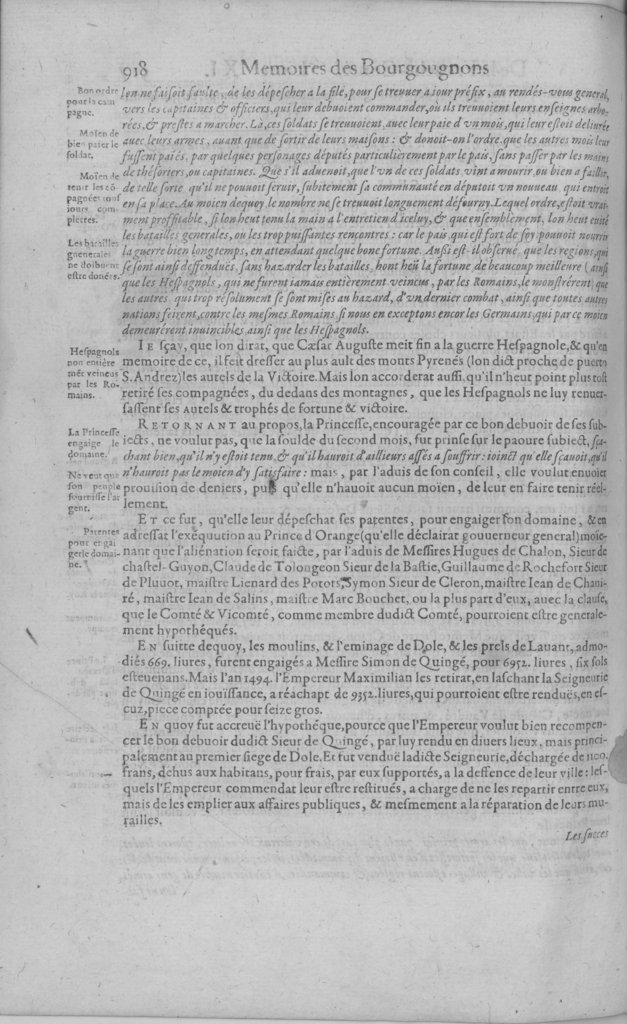 918 Memoires des Bourgougnons
Bon ordre
pour la cam
pagne.
Moïen de
bien païer le
soldat.
Moïen de
tenir les cõ-
pagnées tous
iours com-
plettes.
Les batailles
gnenerales
ne doibuent
estre donées.
lon ne faisoit faulte, de les dépescher a la filé, pour se treuuer a iour préfix, au rendés-vous general,
vers les capitaines & officiers, qui leur debuoient commander, où ils treuuoient leurs enseignes arbo-
rées, & prestes a marcher. Là, ces soldats se treuuoient, auec leur paie d'vn mois, qui leur estoit deliurée,
auec leurs armes, auant que de sortir de leurs maisons: & donoit-on l'ordre, que les autres mois leur
fussent paiés, par quelques personages députés particulièrement par le païs, sans passer par les mains
de thésoriers, ou capitaines. Que s'il aduenoit, que l'vn de ces soldats, vint a mourir, ou bien a faillir,
de telle sorte, qu'il ne pouuoit seruir, subitement sa communauté en députoit vn nouueau, qui entroit
en sa place. Au moïen dequoy, le nombre ne se treuuoit longuement défourny. Lequel ordre, estoit vrai-
ment proffitable, si lon heut tenu la main a l'entretien d'iceluy, & que ensemblement, lon heut euité
les batailles generales, ou les trop puissantes rencontres: car le païs, qui est fort de soy, pouuoit nourrir
la guerre bien longtemps, en attendant quelque bone fortune. Aussi est-il obserué, que les regions, qui
se sont ainsi deffendues, sans hazarder les batailles, hont heü la fortune, de beaucoup meilleure (ainsi
que les Hespagnols, qui ne furent iamais entièrement veincus, par les Romains, le monstrérent) que
les autres, qui trop résolument se sont mises au hazard, d'vn dernier combat, ainsi que toutes autres
nations feirent, contre les mesmes Romains, si nous en exceptons encor les Germains, qui par ce moien
demeurérent inuincibles, ainsi que les Hespagnols.
Hespagnols
non entière
mẽt veincus
par les Ro-
mains.
IE sçay, que lon dirat, que Cæsar Auguste meit fin a la guerre Hespagnole, & qu'en
memoire de ce, il feit dresser au plus ault des monts Pyrenés (lon dict proche de puerto
S. Andrez) les autels de la Victoire. Mais lon accorderat aussi, qu'il n'heut point plus tost
retiré ses compagnées, du dedans des montagnes, que les Hespagnols ne luy renuer-
sassent ses autels & trophés de fortune & victoire.
La Princesse
engaige le
domaine.
Ne veut que
son peuple
fournisse l'ar
gent.
RETORNANT au propos, la Princesse, encouragée par ce bon debuoir de ses sub-
iects, ne voulut pas, que la soulde du second mois, fut prinse sur le paoure subiect, sça-
chant bien, qu'il n'y estoit tenu, & qu'il hauroit d'ailleurs assés a souffrir: ioinct qu'elle scauoit, qu'il
n'hauroit pas le moien d'y satisfaire: mais, par l'aduis de son conseil, elle voulut enuoier
prouision de deniers, puis qu'elle n'hauoit aucun moïen, de leur en faire tenir réel-
lement.
Patentes
pour engai
gerle domai-
ne.
ET ce fut, qu'elle leur dépeschat ses patentes, pour engaiger son domaine, & en
adressat l'exéquution au Prince d'Orange (qu'elle déclairat gouuerneur general) moie-
nant que l'aliénation seroit faicte, par l'aduis de Messires Hugues de Chalon, Sieur de
chastel-Guyon, Claude de Tolongeon Sieur de la Bastie, Guillaume de Rochefort Sieur
de Pluuot, maistre Lienard des Potots, Symon Sieur de Cleron, maistre Iean de Chaui-
ré, maistre Iean de Salins, maistre Marc Bouchet, ou la plus part d'eux, auec la clause,
que le Comté & Vicomté, comme membre dudict Comté, pourroient estre generale-
ment hypothéqués.
EN suitte dequoy, les moulins, & l'eminage de Dole, & les prels de Lauant, admo-
diés 669. liures, furent engaigés a Messire Simon de Quingé, pour 6952. liures, six sols
esteuenans. Mais l'an 1494. l'Empereur Maximilian les retirat, en laschant la Seigneurie
de Quingé en iouïssance, a réachapt de 9352. liures, qui pourroient estre renduës, en es-
cuz, piece comptée pour seize gros.
EN quoy fut accreuë l'hypothéque, pource que l'Empereur voulut bien recompen-
cer le bon debuoir dudict Sieur de Quingé, par luy rendu en diuers lieux, mais princi-
palement au premier siege de Dole. Et fut venduë ladicte Seigneurie, déchargée de
frans, dehus aux habitans, pour frais, par eux supportés, a la deffence de leur ville: les-
quels l'Empereur commendat leur estre restitués, a charge de ne les repartir entre eux,
mais de les emplier aux affaires publiques, & mesmement a la réparation de leurs mu-
railles.
Les succes